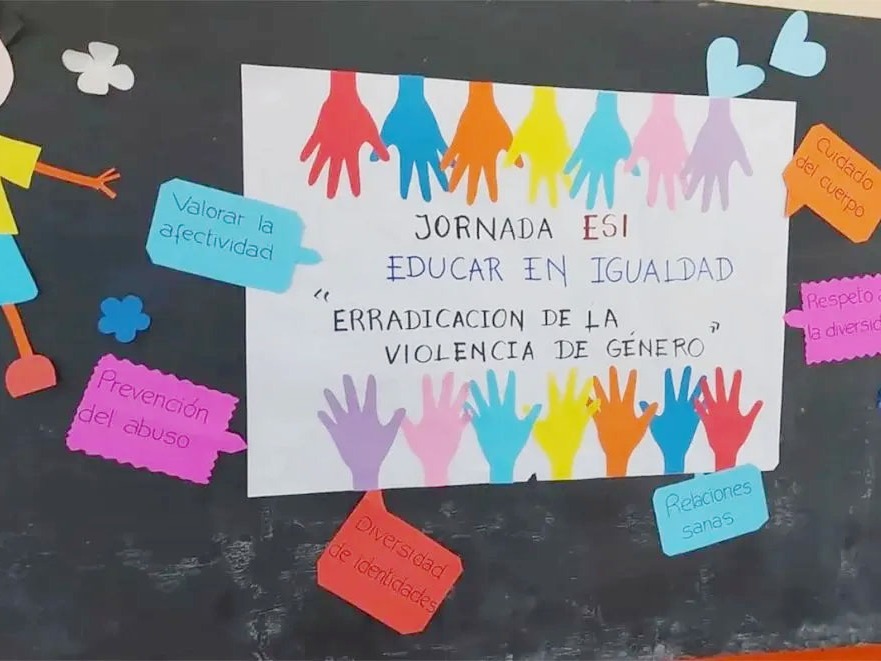 JORNADA ESI
EDUCAR EN IGUALDAD
"ERRADICACION DE LA
VIOLENCIA DE GÉNERO"
Valorar la
afectividad
Prevención
del abuso
Diversidad
de identidades
Relaciones
sanas
Cuidado
del cuerpo
Respeto
la diversid